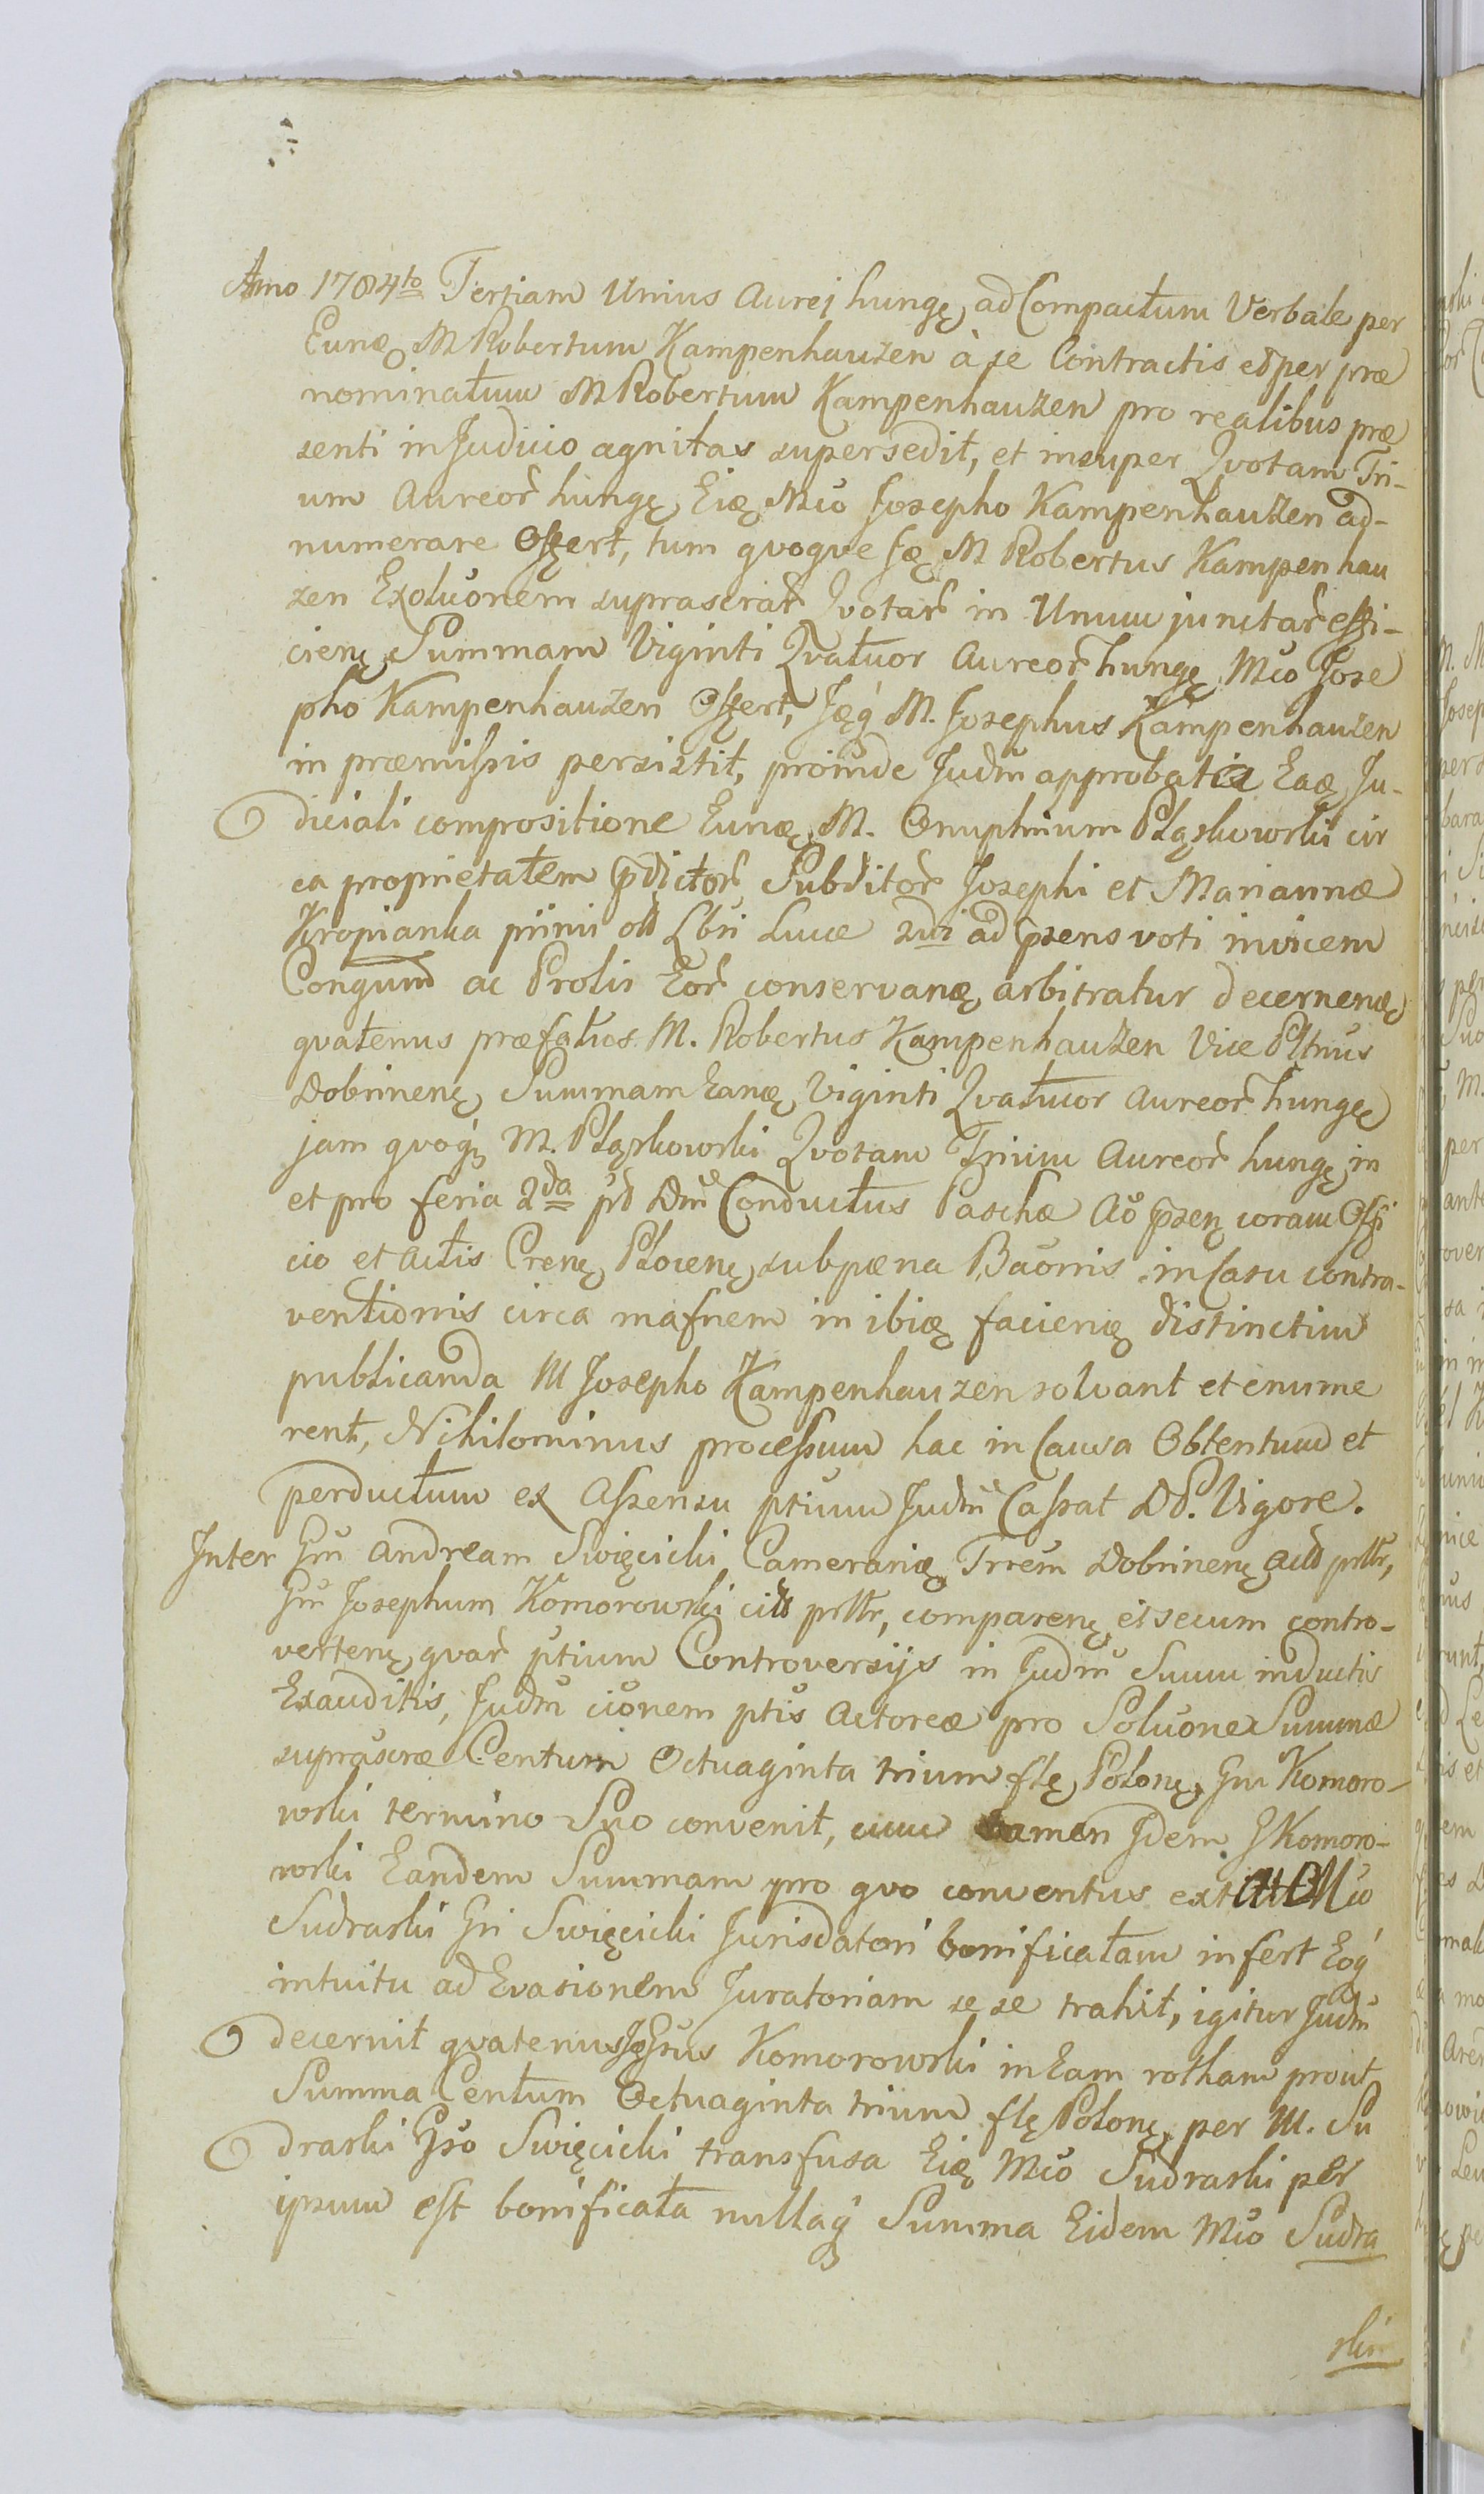 Anno 1784to Tertiam Unius Aurej hungę, ad Compactum Verbale per
Eunę M Robertum Kampenhauzen à se Contractis et per præ
nominatum M Robertum Kampenhauzen pro realibus præ
senti in Judicio agnitas supersedit, et insuper Qvotam Tri-
um Aureor hungę, Eię Mco Josepho Kampenhauzen ad-
numerare Offert, tum qvoqve Ję M Robertus Kampenhau
zen Exolučonem suprascrar Qvotar in Unum junctar effi-
cienę Summam Viginti Qvatuor Aureor hungę Mco Jose
pho Kampenhauzen Offert, Jęq M. Josephus Kampenhauzen
in præmissis persistit, proinde Judm approbatis Eaę Ju-
diciali compositione Eunę, M. Onuphrium Pląskowski cir
ca proprietatem prædictor Subditor Josephi et Mariannæ
Kropianka primi olt Lbri Lucæ 2di ad præsens voti invicem
Conguum ac Prolis Eor conservanę arbitratur decernenę
qvatenus præfatus M. Robertus Kampenhauzen Vice Pltnus
Dobrinenę, Summam Eanę Viginti Qvatuor Aureor hungę
jam qvoq M. Pląskowski Qvotam Trium Aureor hungę in
et pro feria 2da pt Dm Conductus Paschæ Aō præsenę coram Offi
cio et Actis Crenę Plocenę sub pæna Bačonis in Casu contra-
ventionis circa mafnem in ibię facienę distinctim
publicanda M Josepho Kampenhauzen solvant et enume
rent, Nihilominus processum hac in Causa Obtentum et
perductum ex Assensu ptium Judm Cassat DP. Vigore.
Inter Gm Andream Swięcicki Camerarię Trrem Dobrinenę actt prllr,
Gm Josephum Komorowski citt prllr, comparenę et secum contro-
vertenę, qvar ptium Controversijs in Judm Suum inductis
Exauditis, Judm cionem ptis Actoreæ pro Solučone Summæ
suprascræ Centum Octuaginta trium flę Polonę, Gm Komoro-
wski termino Suo convenit, cum tamen Idem G Komoro-
wski Eandem Summam pro qvo conventus ext Mco
Sudraski Gri Swięcicki Jurisdatori bonificatam infert Eoq
intuitu ad Evasionem Juratoriam se se trahit, igitur Judm
decernit qvatenus Ję Grus Komorowski in Eam rotham prout
Summa Centum Octuaginta trium flę Polonę, per M. Su
draski Gso Swięcicki transfusa Eię Mco Sudraski per
ipsum est bonificata nullaq Summa Eidem Mco Sudra
ski